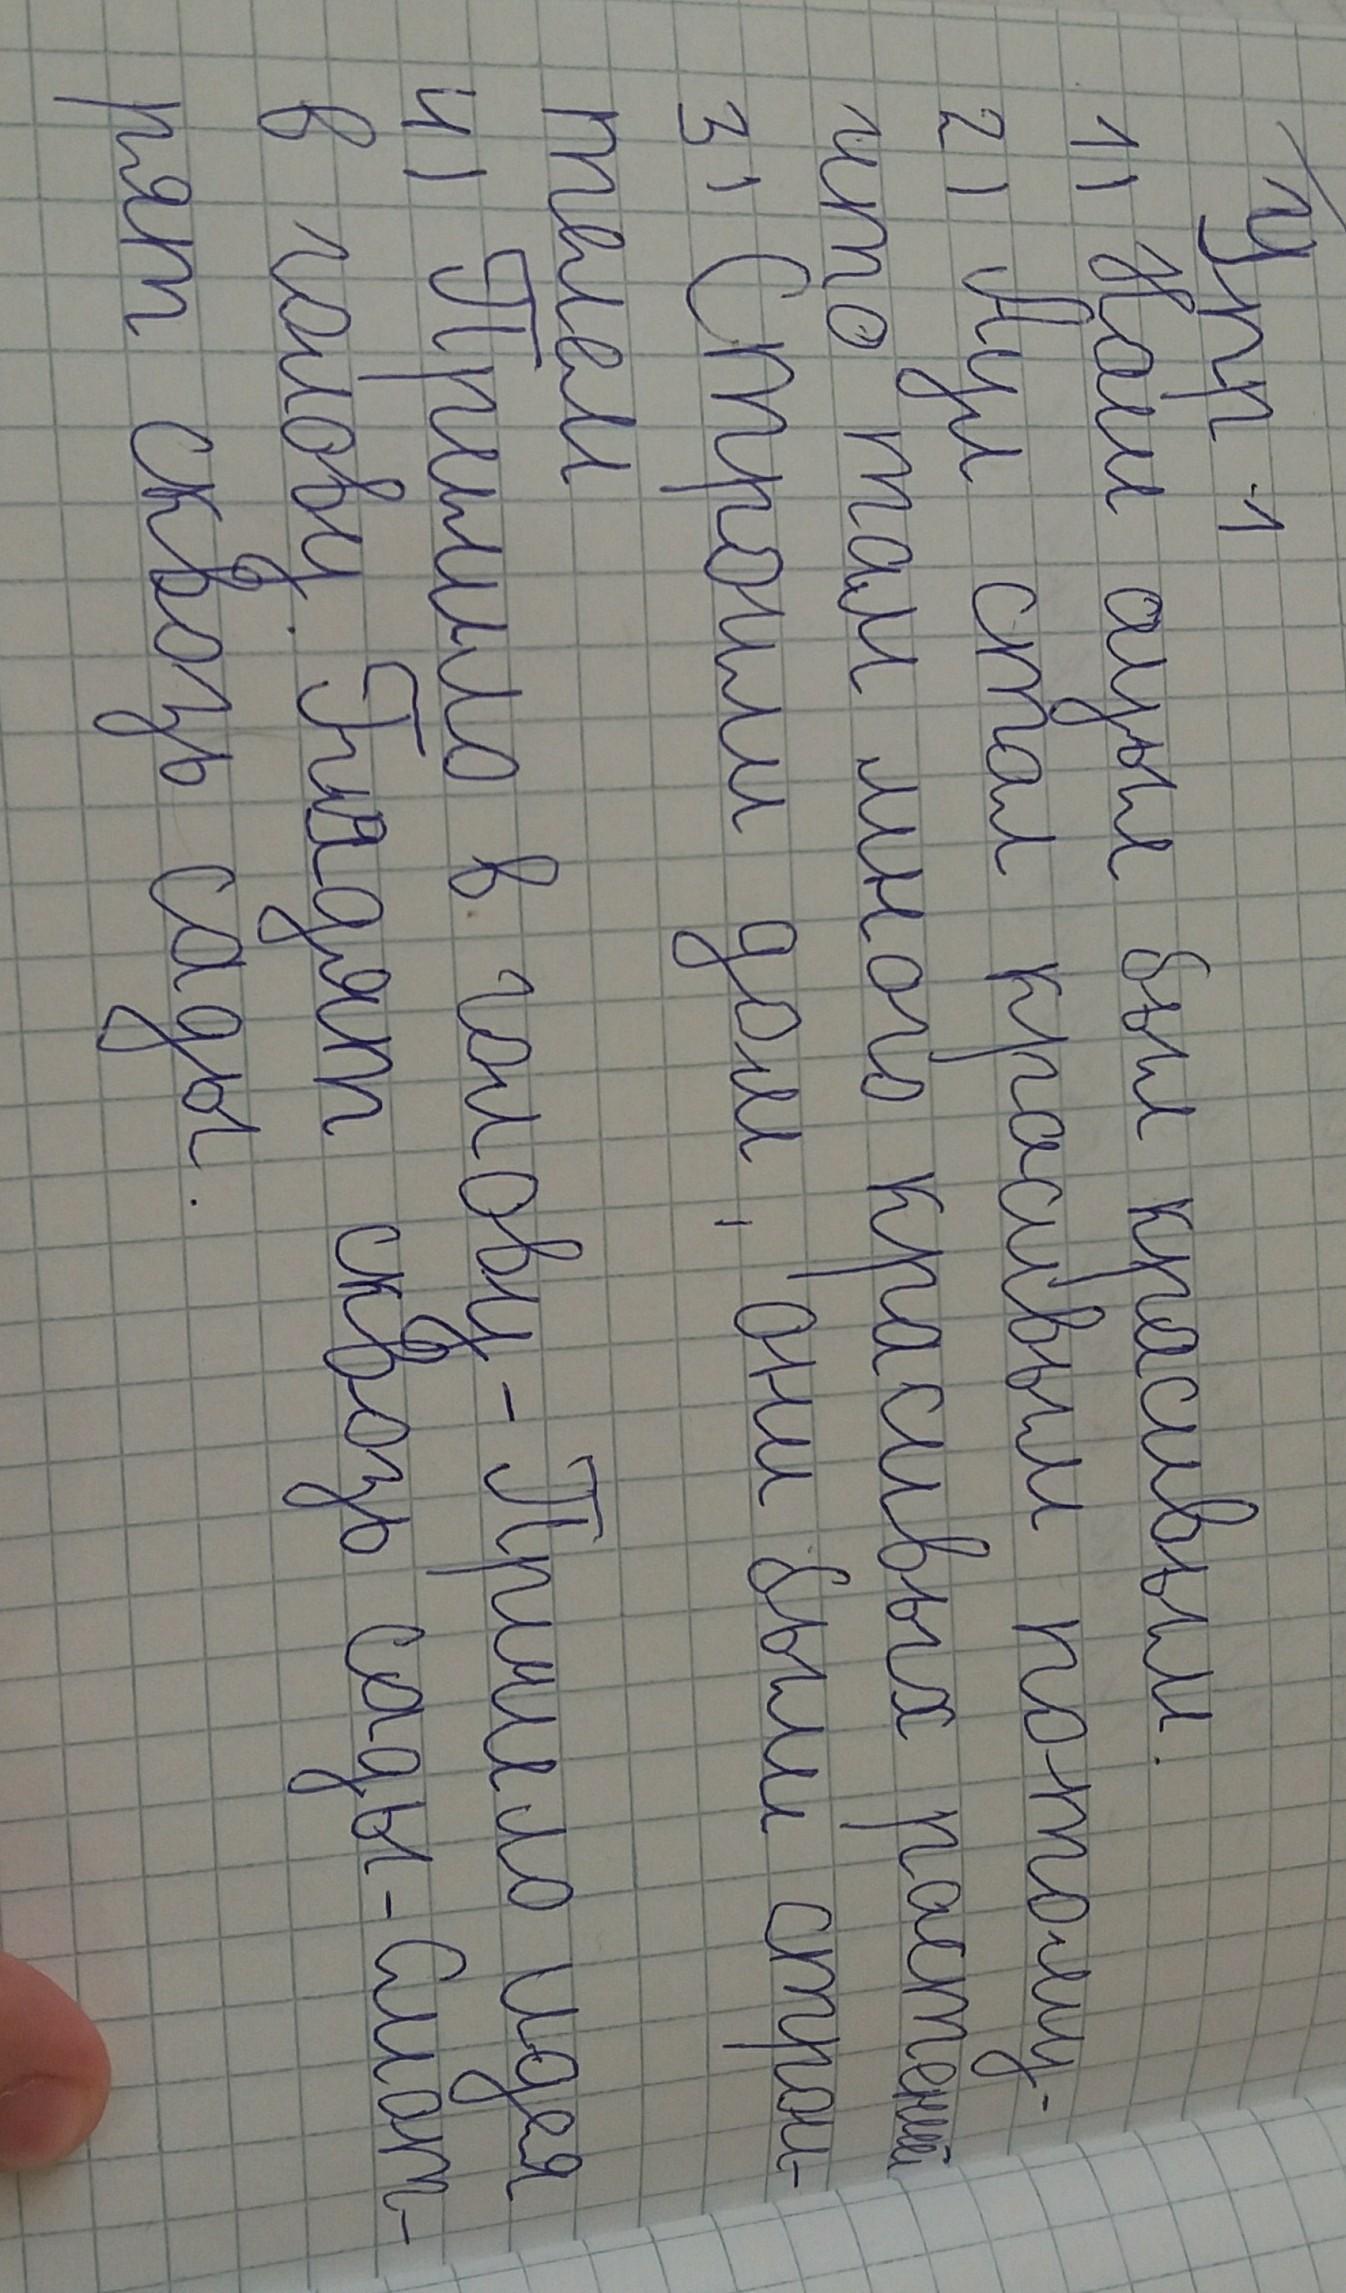 Упр-1
1) Наш ауыл был красивым.
2) Аул стал красивым потому-
что там много красивых растений
3) Строили дом, они были строи-
тели
4) Пришло в голову - Пришло идея
в голову. Глядят сквозь сады - Смот-
рят сквозь сады.